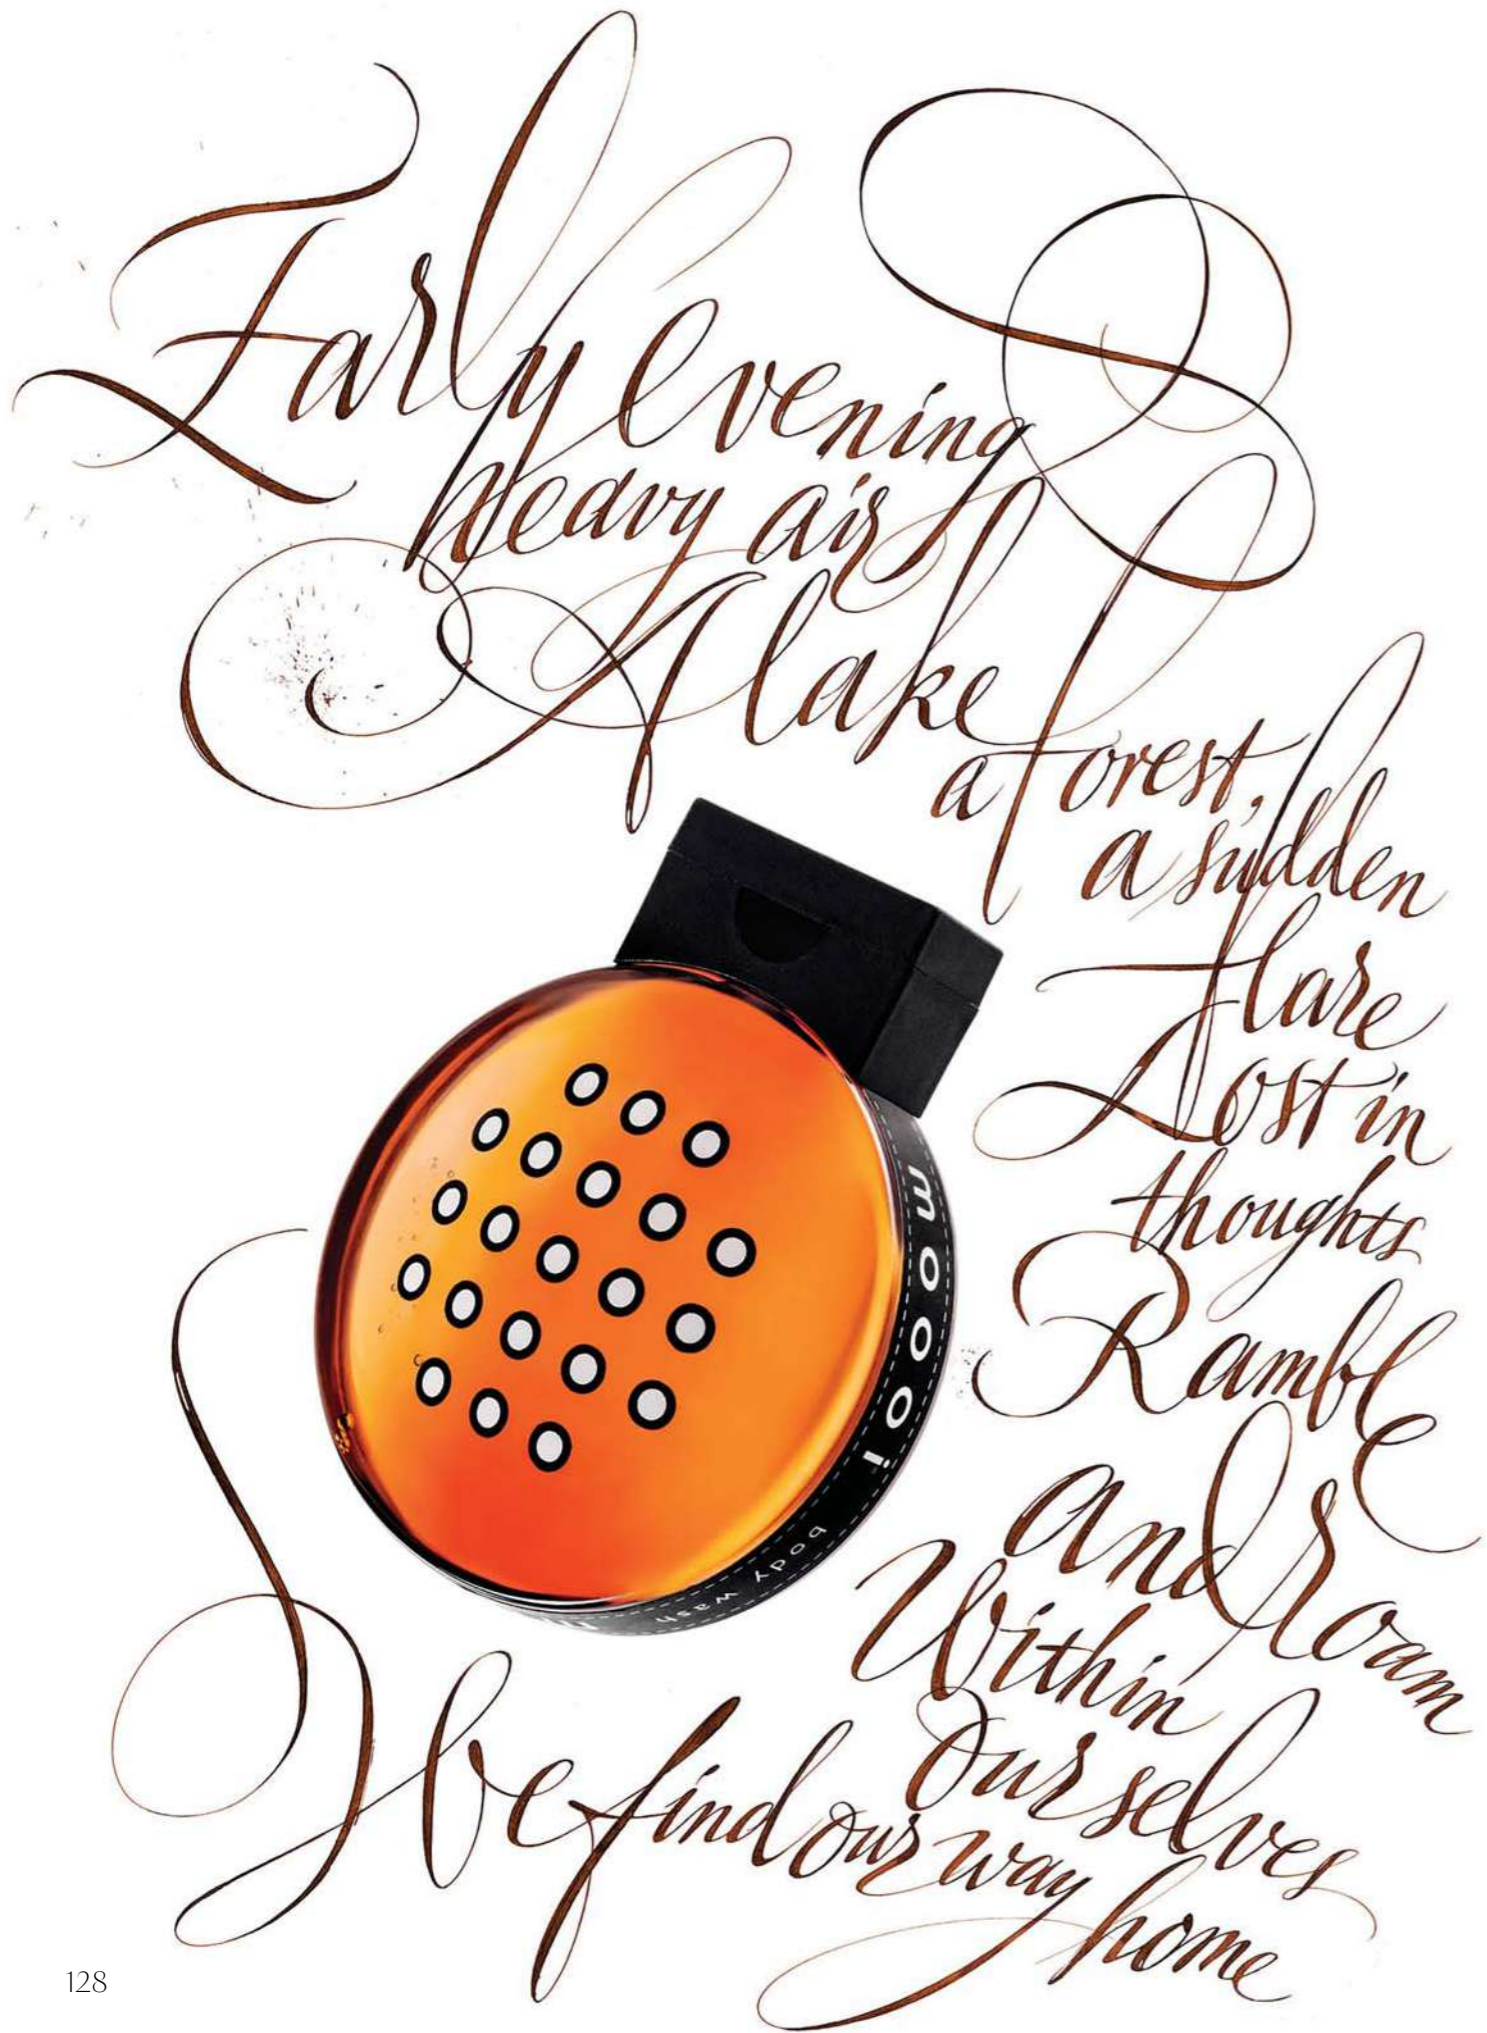 Early evening
heavy air
A lake
a forest,
a sudden
flare
Lost in
thoughts
Ramble
and roam
Within
Ourselves
We find our way
home
moooi
body wash
128